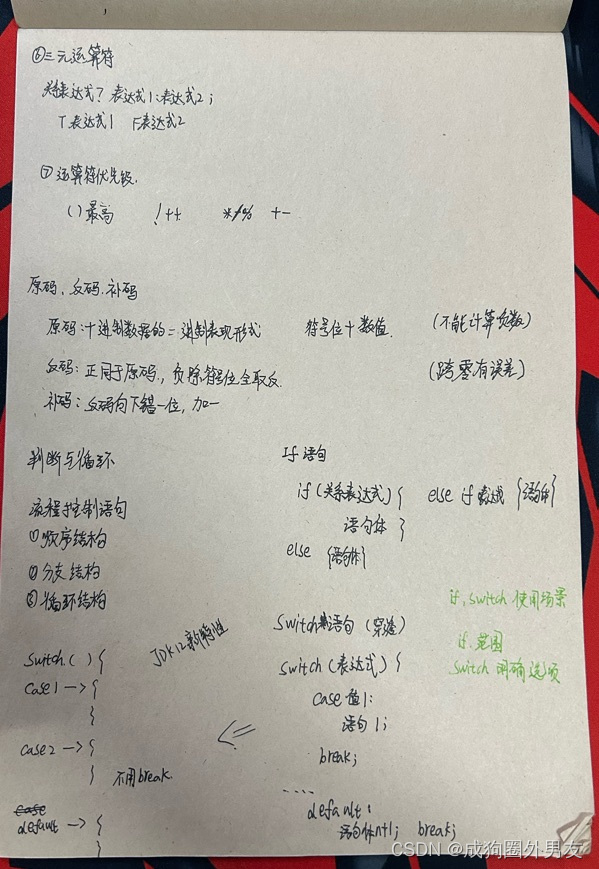 ⑥三元运算符
关系表达式? 表达式1:表达式2;
T表达式1 F表达式2
⑦运算符优先级.
()最高 !++ */% +-
原码、反码.补码
原码:十进制数据的二进制表现形式 符号位+数值. (不能计算负数)
反码:正同于原码,负除符号位全取反. (跨零有误差)
补码:反码向下错一位,加一
判断与循环
流程控制语句
①顺序结构
②分支结构
③循环结构
If 语句
if (关系表达式) { else if 表达式 {语句体}
语句体 }
else {语句体}
if, switch 使用场景
if. 范围
switch 明确选项
switch语句 (穿透)
switch (表达式) {
case 值1:
语句1;
break;
....
default:
语句体n+1; break;
JDK12新特性
switch ( ) {
case1 -> {
}
case2 -> {
} 不用break.
case
default -> {
}
CSDN @成狗圈外男友